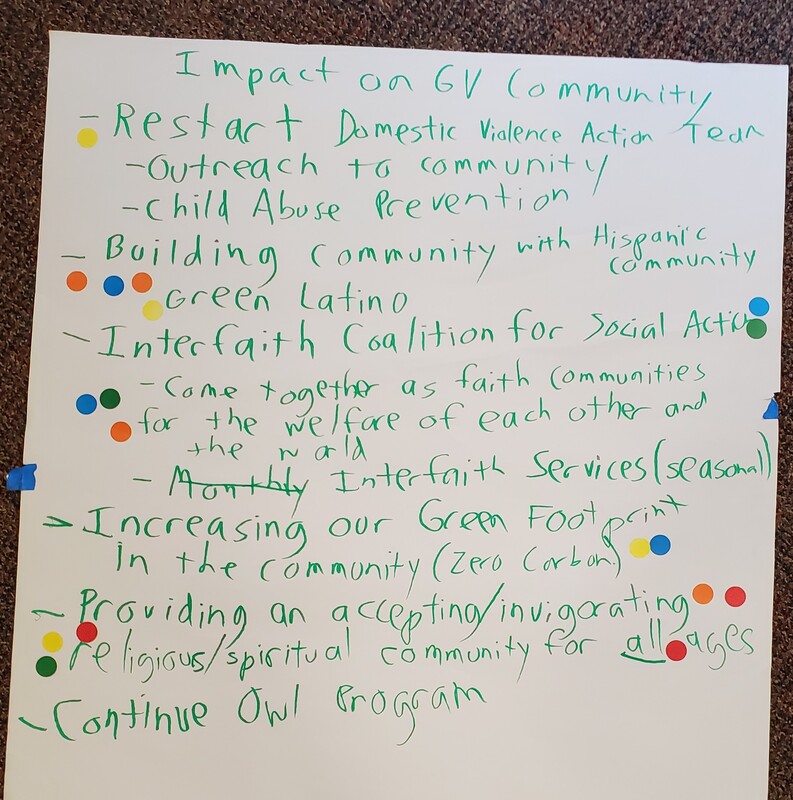 Impact on GV Community
- Restart Domestic Violence Action Team
- Outreach to community
- Child Abuse Prevention
- Building Community with Hispanic
community
Green Latino
- Interfaith Coalition for Social Action
- Come together as faith communities
for the welfare of each other and
the world
- Monthly Interfaith Services (seasonal)
> Increasing our Green Footprint
in the community (Zero Carbon)
- Providing an accepting/invigorating
religious/spiritual community for all ages
- Continue Owl Program